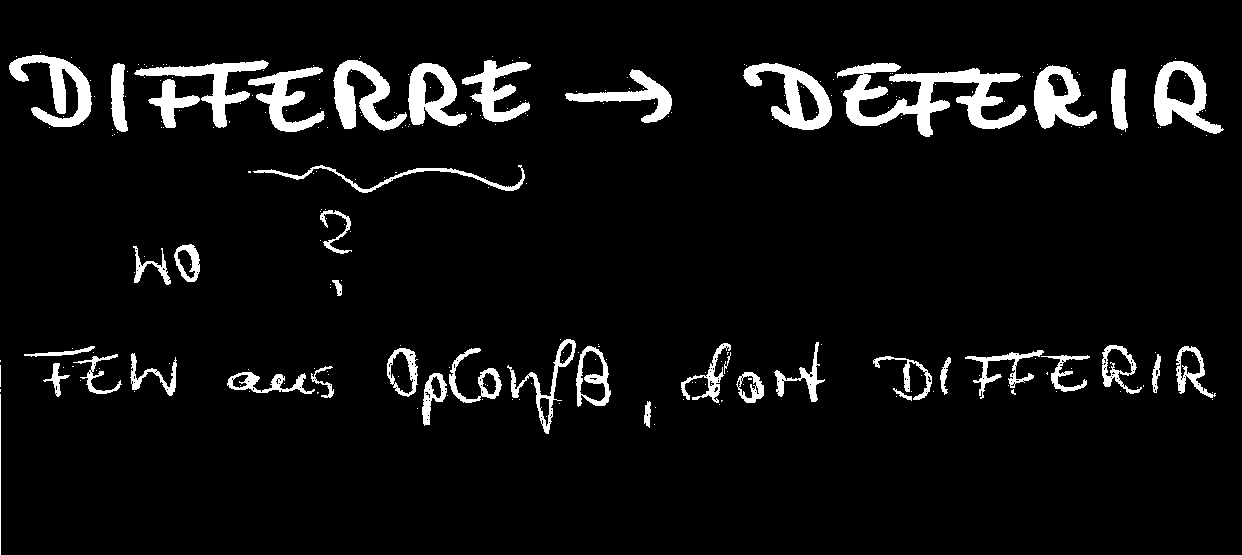 DIFFERRE → DEFERIR
?
wo
FEW aus OpConfB, dort DIFFERIR